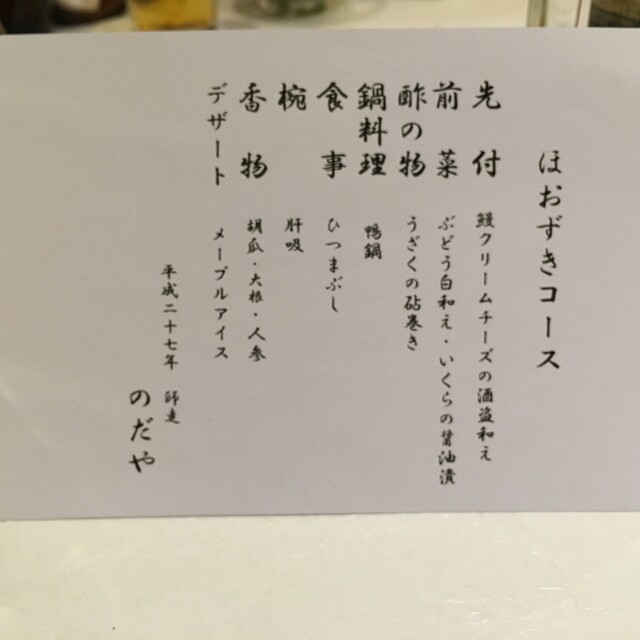 ほおずきコース
先付 鰻クリームチーズの酒盗和え
前菜 ぶどう白和え・いくらの醤油漬
酢の物 うざくの砧巻き
鍋料理 鴨鍋
食事 ひつまぶし
椀 肝吸
香物 胡瓜・大根・人参
デザート メープルアイス
平成二十七年 師走
のだや